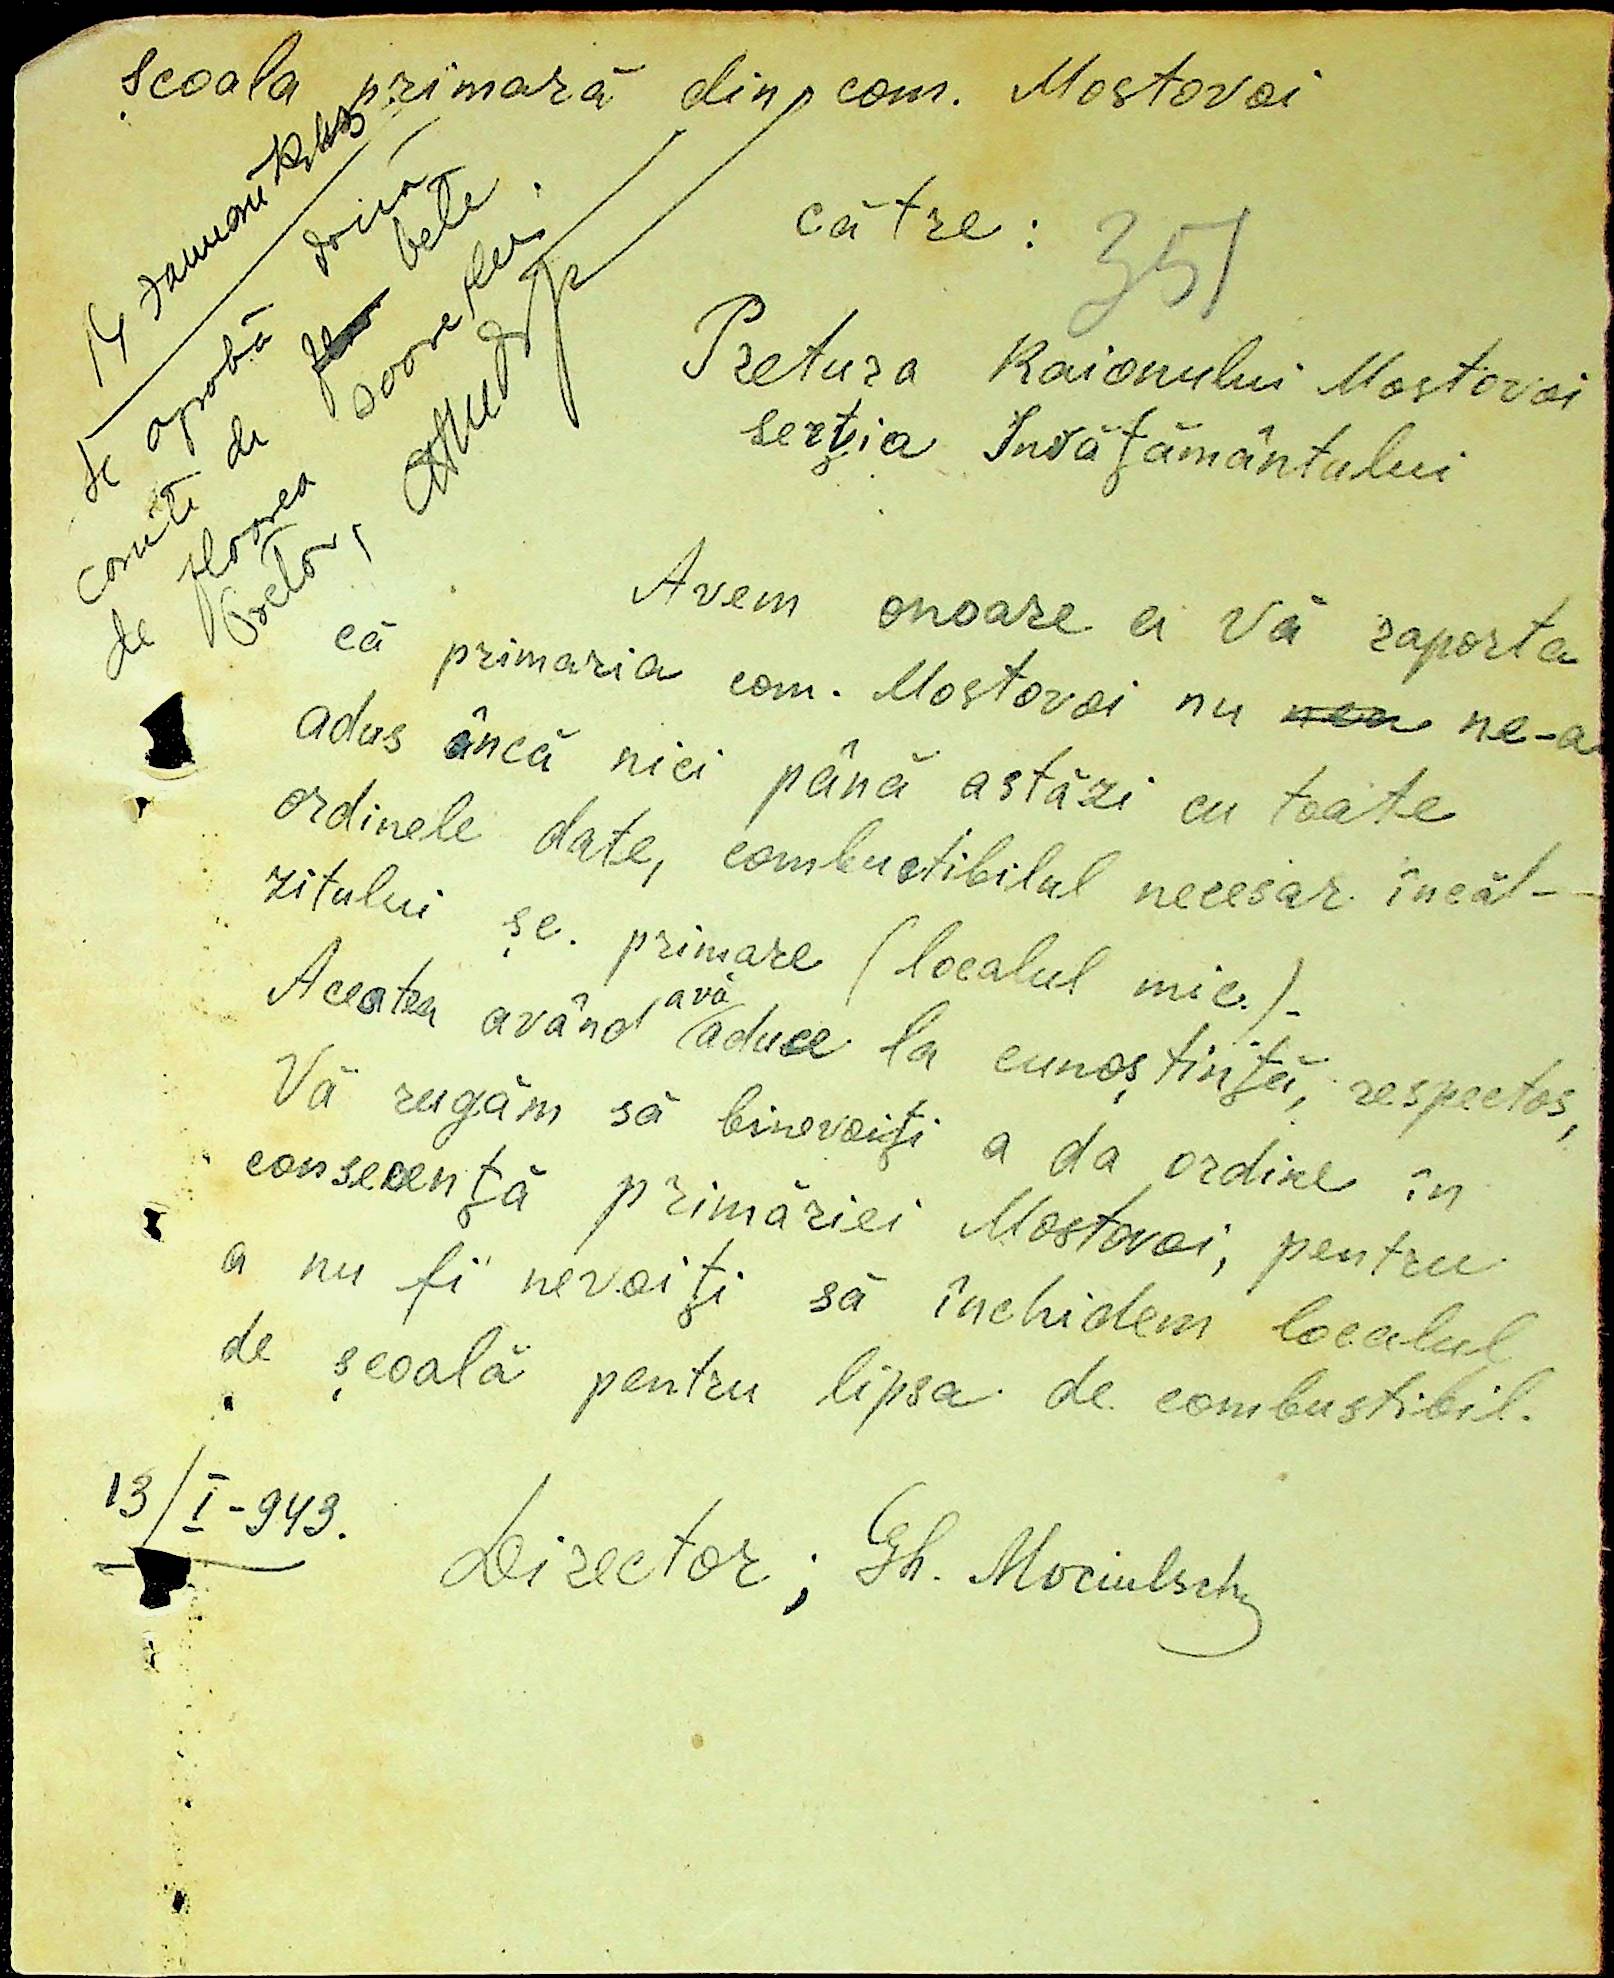 Școala primară din com. Mostovoi
către:
351
Pretura Raionului Mostovoi
serția Învățământului
14 Ianuarie
Se aprobă două
carute de bete
de floarea soarelui.
Pretor,
Avem onoare a Vă raporta
că primaria com. Mostovoi nu ne-a
adus încă nici până astăzi cu toate
ordinele date, combustibilul necesar încăl-
zitului șc. primare (localul mic).-
Acestea având a vă aduce la cunoștință, respectos,
Vă rugăm să binevoiți a da ordine în
consecență primăriei Mostovoi, pentru
a nu fi nevoiți să închidem localul
de școală pentru lipsa de combustibil.
13/I-943.
Director; Gh. Mociulschi